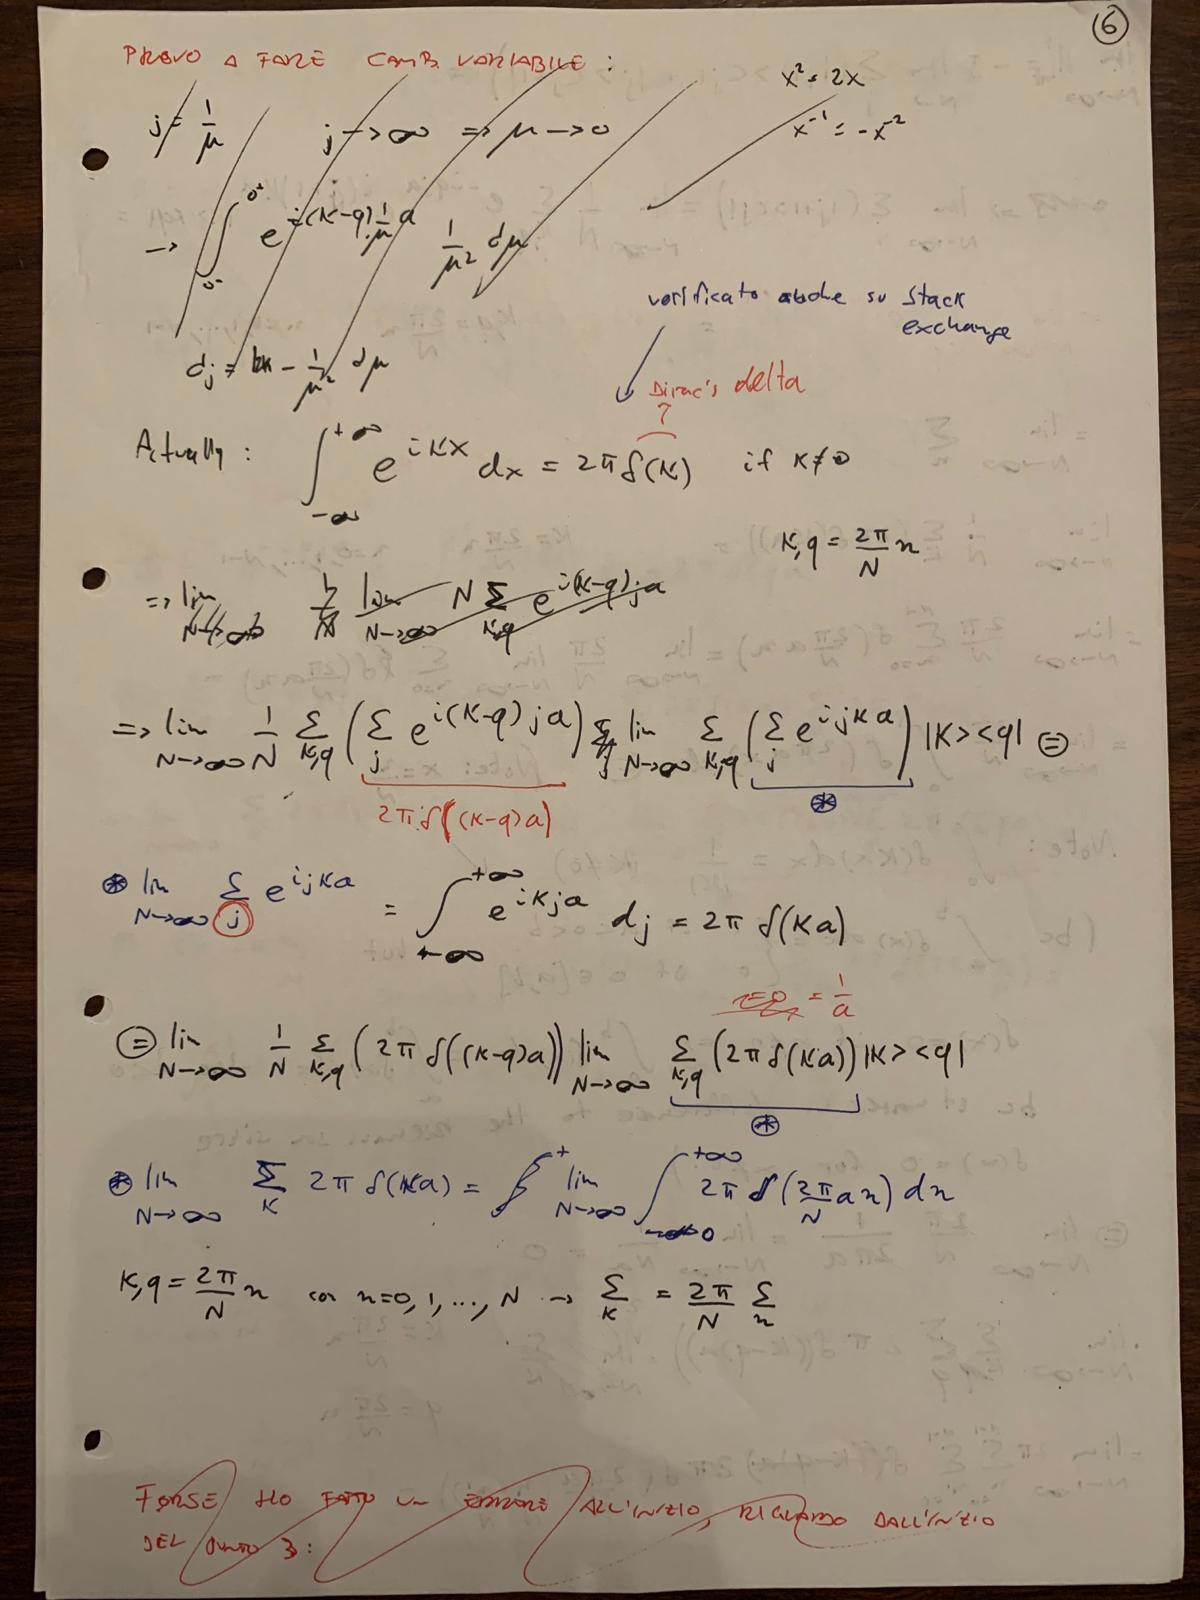 6
PROVO A FARE CAMB. VARIABILE:
x² = 2x
j = 1/μ j → ∞ ⇒ μ → 0
x⁻¹ = -x⁻²
→ ∫_{0⁻}^{0⁺} e^{i(k-q)\frac{1}{μ}a} \frac{1}{μ²} dμ
verificato anche su Stack
exchange
dj = - \frac{1}{μ²} dμ
Dirac's delta
Actually: ∫_{-∞}^{+∞} e^{ikx} dx = 2π δ(k) if k≠0
k,q = \frac{2π}{N} n
⇒ lim_{N→∞} \frac{1}{N} lim_{N→∞} N Σ_{k,q} e^{i(k-q)ja}
⇒ lim_{N→∞} \frac{1}{N} Σ_{k,q} (Σ_j e^{i(k-q)ja}) lim_{N→∞} Σ_{k,q} (Σ_j e^{ijka}) |k><q| =
2π δ((k-q)a) *
* lim_{N→∞} Σ_j e^{ijka} = ∫_{-∞}^{+∞} e^{ikja} dj = 2π δ(ka)
= \frac{1}{a}
= lim_{N→∞} \frac{1}{N} Σ_{k,q} (2π δ((k-q)a)) lim_{N→∞} Σ_{k,q} (2π δ(ka)) |k><q|
*
* lim_{N→∞} Σ_k 2π δ(ka) = lim_{N→∞} ∫_0^{+∞} 2π δ(\frac{2π}{N} an) dn
k,q = \frac{2π}{N} n con n=0,1,...,N → Σ_k = \frac{2π}{N} Σ_n
FORSE HO FATTO UN ERRORE ALL'INIZIO, RIGUARDO DALL'INIZIO
DEL PUNTO 3: